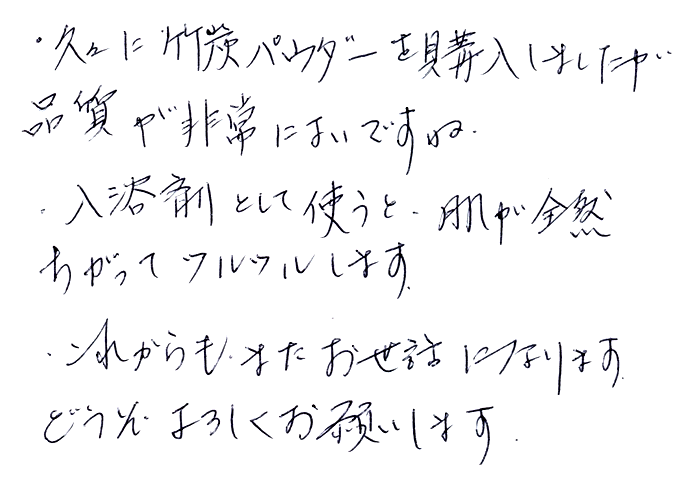 ・久々に竹炭パウダーを購入しましたが
品質が非常によいですね.
・入浴剤として使うと、肌が全然
ちがってツルツルします.
・これからも、またお世話になります.
どうぞよろしくお願いします.